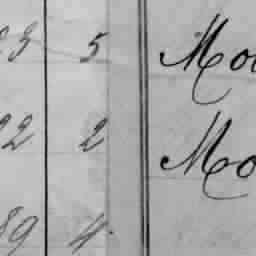 5 Mo
22 2 Mo
89 4